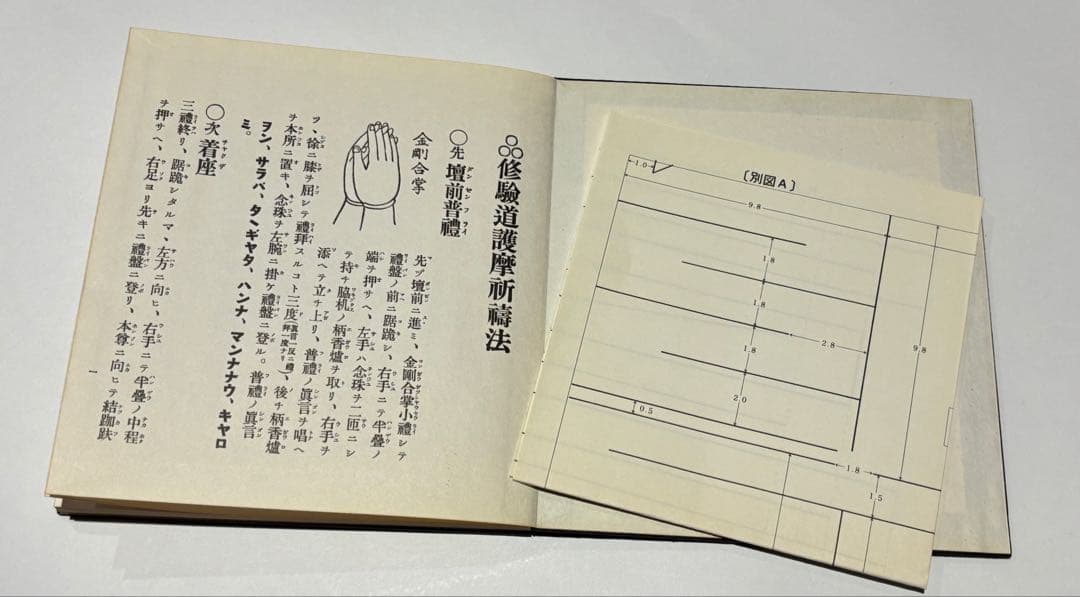 修驗道護摩祈禱法
○先壇前普禮
金剛合掌
先ヅ壇前ニ進ミ、金剛合掌小禮シテ
禮盤ノ前ニ踞跪シ、右手ニテ半疊ノ
端ヲ押サヘ、左手ハ念珠ヲ二匝ニシ
テ持チ脇机ノ柄香爐ヲ取リ、右手ヲ
添ヘテ立チ上リ、普禮ノ眞言ヲ唱ヘ
ツ、徐ニ膝ヲ屈シテ禮拜スルコト三度(眞言一反ニ禮拜一度ナリ)、後チ柄香爐
ヲ本所ニ置キ、念珠ヲ左腕ニ掛ケ禮盤ニ登ル。普禮ノ眞言
ヲン、サラバ、タヽギャタ、ハンナ、マンナナウ、キャロ
ミ。
○次着座
三禮終リ、踞跪シタルマヽ左方ニ向ヒ、右手ニテ半疊ノ中程
ヲ押サヘ、右足ヨリ先キニ禮盤ニ登リ、本尊ニ向ヒテ結跏趺
一
〔別図A〕
1.0
9.8
1.8
1.8
2.8
9.8
1.8
2.0
0.5
1.8
1.5